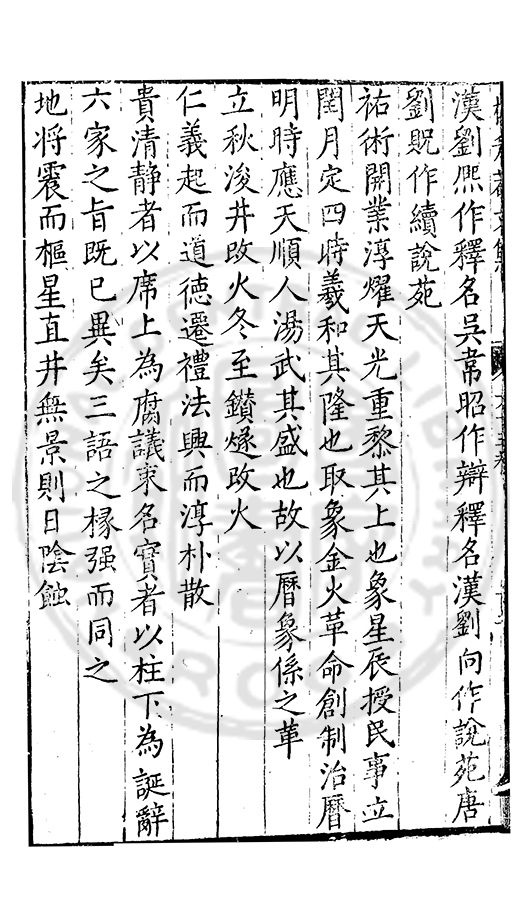 漢劉熈作釋名吳韋昭作辯釋名漢劉向作說苑唐
劉貺作續說苑
祐術開業淳耀天光重黎其上也象星辰授民事立
閏月定四時羲和其隆也取象金火革命創制治曆
明時應天順人湯武其盛也故以曆象係之革
立秋浚井攺火冬至鑚燧攺火
仁義起而道徳遷禮法興而淳朴散
貴清靜者以席上為腐議束名實者以柱下為誕辭
六家之㫖既已異矣三語之掾强而同之
地将震而樞星直井無景則日陰蝕